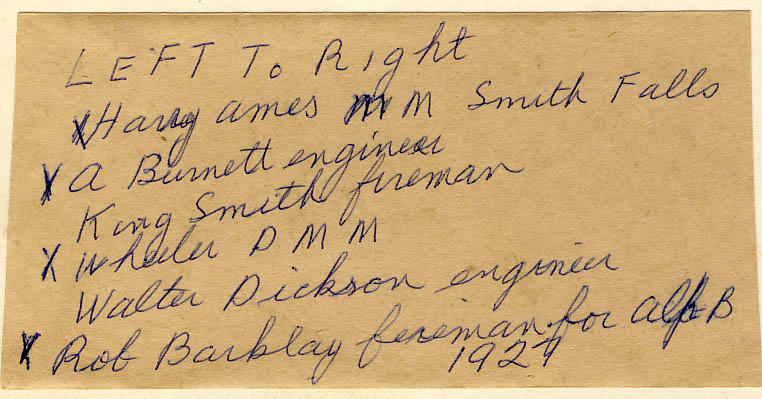 LEFT To Right
X Harry ames M M Smith Falls
X a Burnett engineer
King Smith fireman
X Wheeler D M M
Walter Dickson engineer
X Rob Barklay fireman for alf B
1927